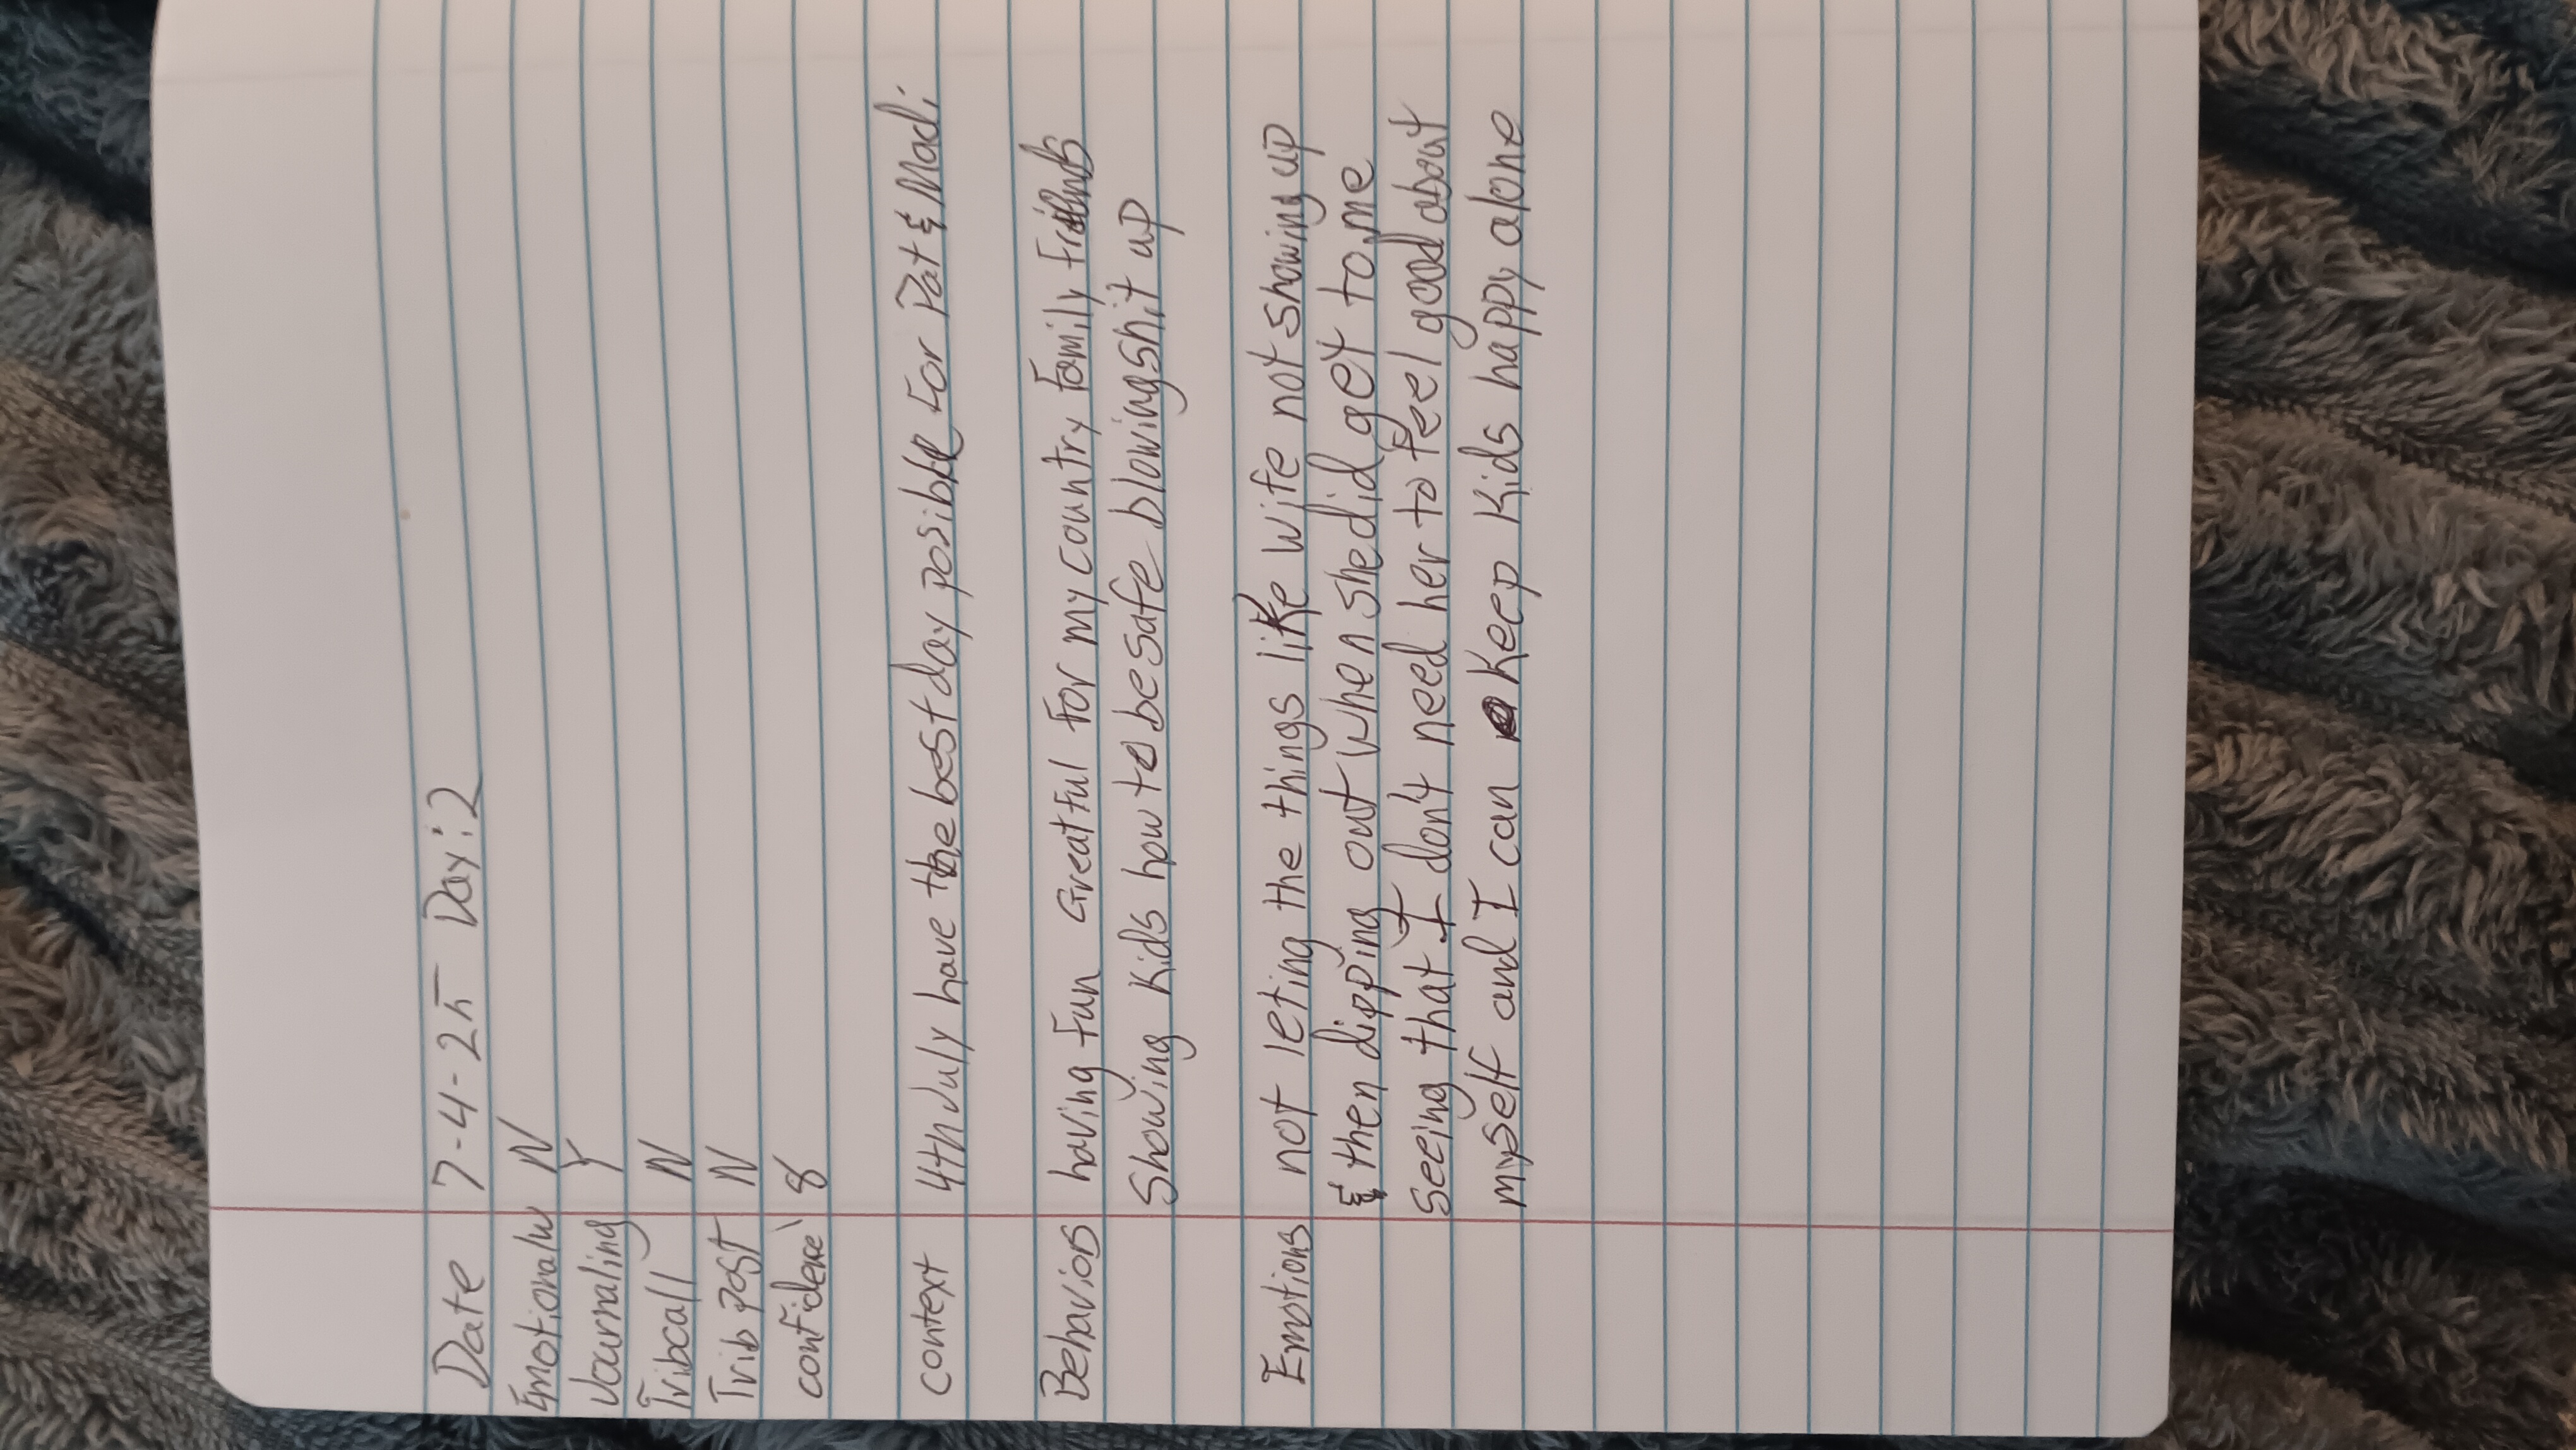 Date 7-4-25 Day: 2
Emotional w N
Journaling Y
Tribcall N
Trib Post N
confidence 8
context 4th July have the best day posible For Pat & Madi
Behaviors having Fun Greatful For my country Family Friends
Showing Kids how to be safe blowing shit up
Emotions not leting the things like wife not showing up
& then dipping out when she did get to me
Seeing that I don't need her to Feel good about
myself and I can Keep Kids happy alone